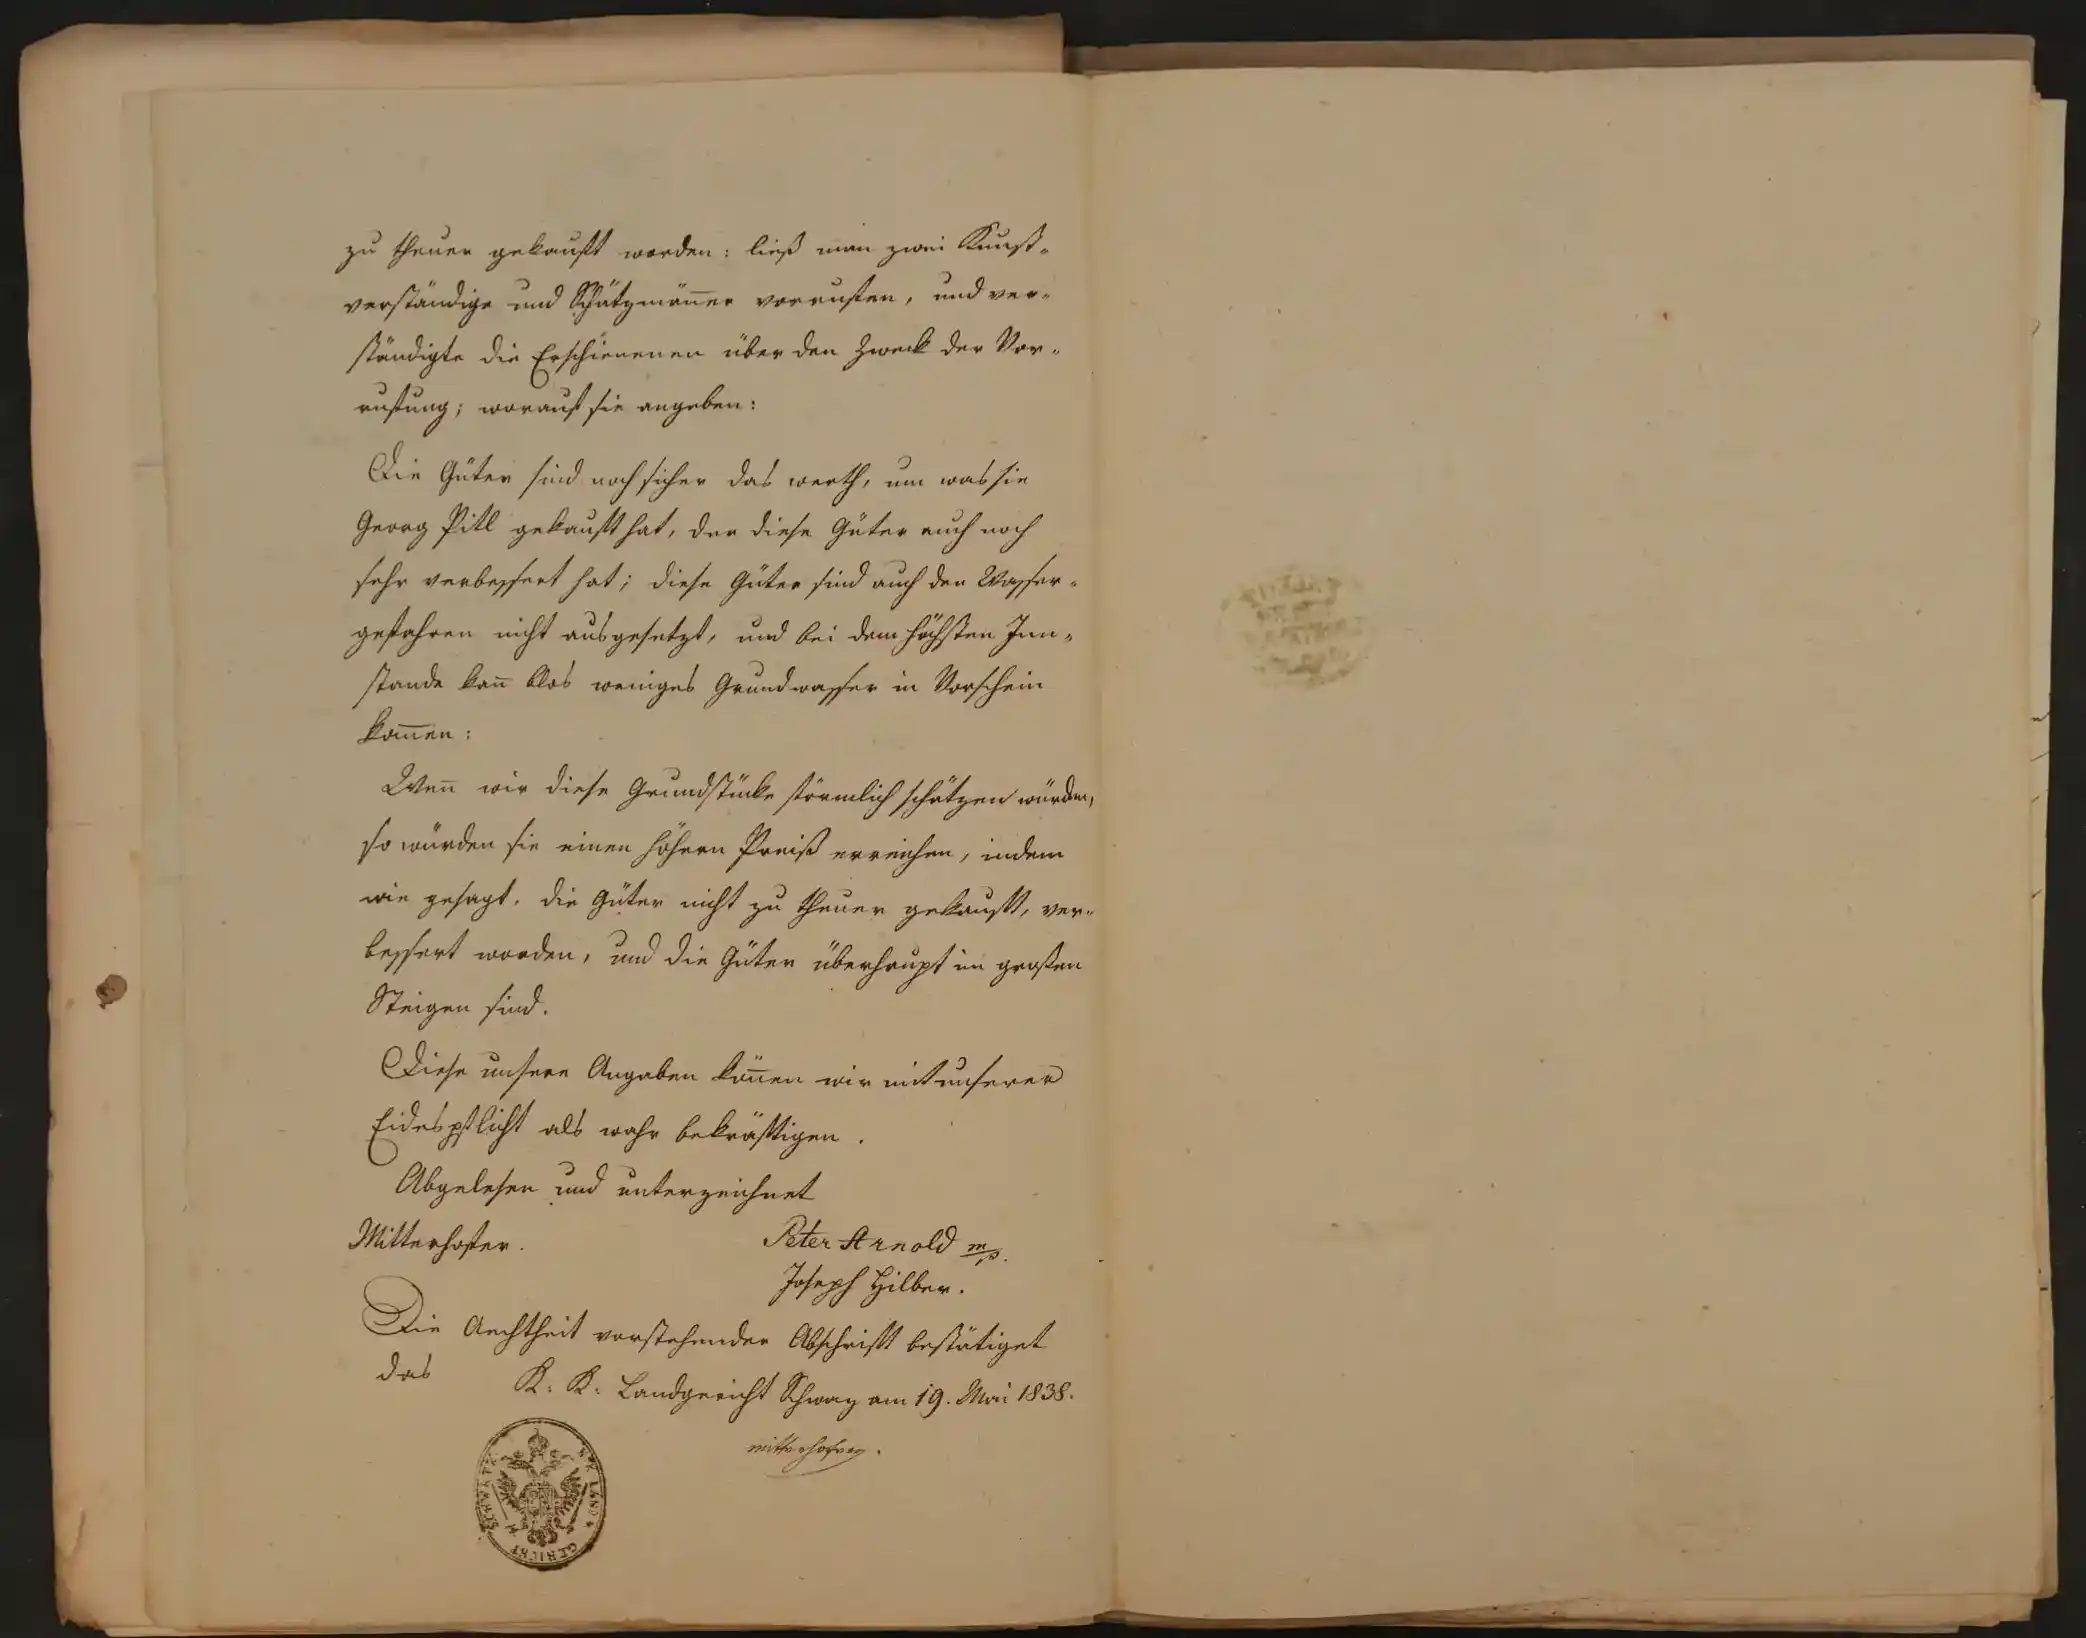 zu theuer gekauft worden: ließ man zwei Kunst-
verständige und Schätzmañer vorrufen, und ver-
ständigte die Erschienenen über den Zweck der Vor-
rufung; worauf sie angeben:
Die Güter sind noch sicher das werth, um was sie
Georg Pitl gekauft hat, der diese Güter auch noch
sehr verbessert hat; diese Güter sind auch den Wasser-
gefahren nicht ausgesetzt, und bei dem höchsten Inn-
stande kañ blos weniges Grundwasser in Vorschein
kom̅en:
Weñ wir diese Grundstücke förmlich schätzen würden,
so würden sie einen höhern Preiß erreichen, indem
wie gesagt, die Güter nicht zu theuer gekauft, ver-
bessert worden, und die Güter überhaupt im großen
Steigen sind.
Diese unsere Angaben köñen wir mit unserer
Eidespflicht als wahr bekräftigen.
Abgelesen und unterzeichnet
Mitterhofer.
Peter Arnold m/p.
Joseph Hilber.
Die Aechtheit vorstehender Abschrift bestätiget
das
K: K: Landgericht Schwaz am 19. Mai 1838.
Mitterhofer.
K. K. LAND GERICHT SCHWATZ